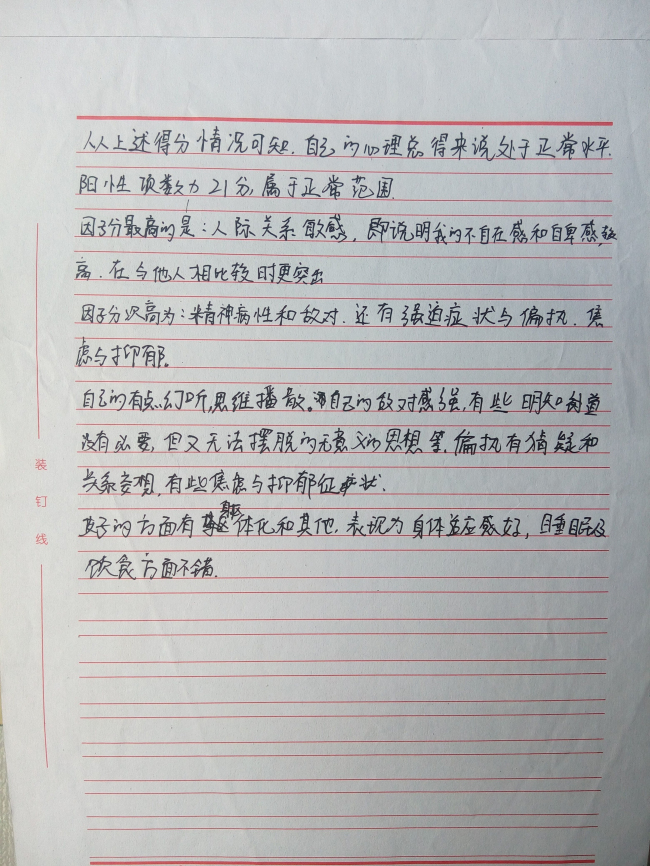 从以上述得分情况可知.自己的心理总得来说处于正常水平.
阳性项数为21分,属于正常范围.
因子分最高的是:人际关系敏感,即说明我的不自在感和自卑感,较
高.在与他人相比较时更突出
因子分次高为:精神病性和敌对.还有强迫症状与偏执.焦
虑与抑郁。
自己的有点幻听,思维播散。自己的敌对感强,有些明知道
没有必要,但又无法摆脱的无意义的思想等.偏执有猜疑和
关系妄想,有些焦虑与抑郁症状.
好的方面有躯体化和其他.表现为身体适应感好,睡眠及
饮食方面不错.
装
钉
线